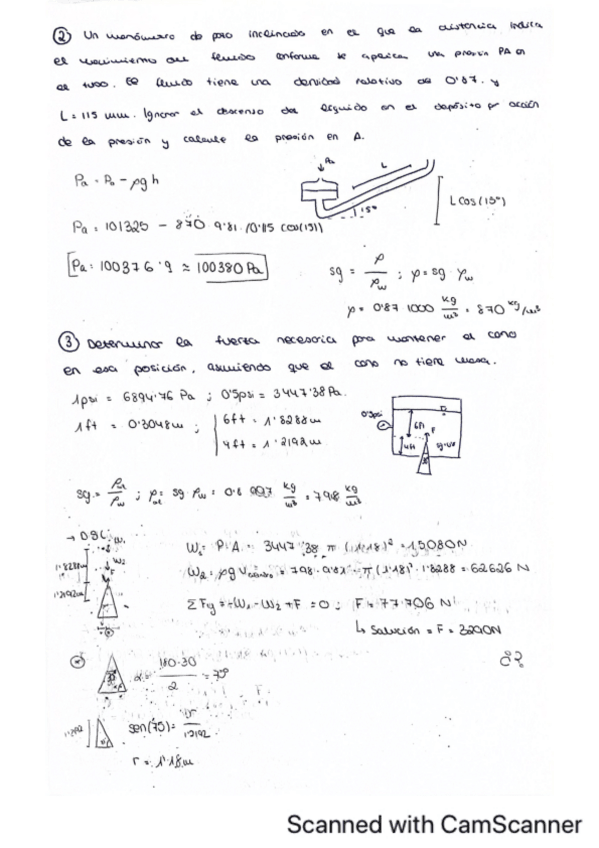 ② Un manómetro de pozo inclinado en el que la distancia indica
el movimiento del fluido conforme se aplica una presión PA en
el tubo. El fluido tiene una densidad relativa de 0'87. y
L = 115 mm. Ignorar el descenso del líquido en el depósito por acción
de la presión y calcule la presión en A.
Pa = P₀ - ρgh
Pa
L
15°
L cos(15°)
Pa = 101325 - 870 9'81 · 0'115 cos(15))
Pa = 100376'9 ≈ 100380 Pa
sg = ρ / ρw ; ρ = sg · ρw
ρ = 0'87 1000 kg/m³ = 870 kg/m³
③ Determinar la fuerza necesaria para mantener el cono
en esa posición, asumiendo que el cono no tiene masa.
1psi = 6894'76 Pa ; 0'5psi = 3447'38 Pa.
1ft = 0'3048m ; 6ft = 1'8288m
4ft = 1'2192m
0'5psi
6ft
F
4ft
sg = ρ / ρw ; ρ = sg · ρw = 0'8 997 kg/m³ = 798 kg/m³
→ DSL
W₁
W₂
F
1'8288m
1'2192m
W₁ = P·A = 3447'38 π (1'18)² = 15080N
W₂ = ρ g V = 798 · 9'81 · π (1'18)² · 1'8288 = 62626 N
ΣFy = -W₁ - W₂ + F = 0 ; F = 77'706 N
↳ Solución = F = 3290N
¿?
180-30 / 2 = 75°
1'2192
sen(75) = r / 1'2192
r = 1'18m
Scanned with CamScanner